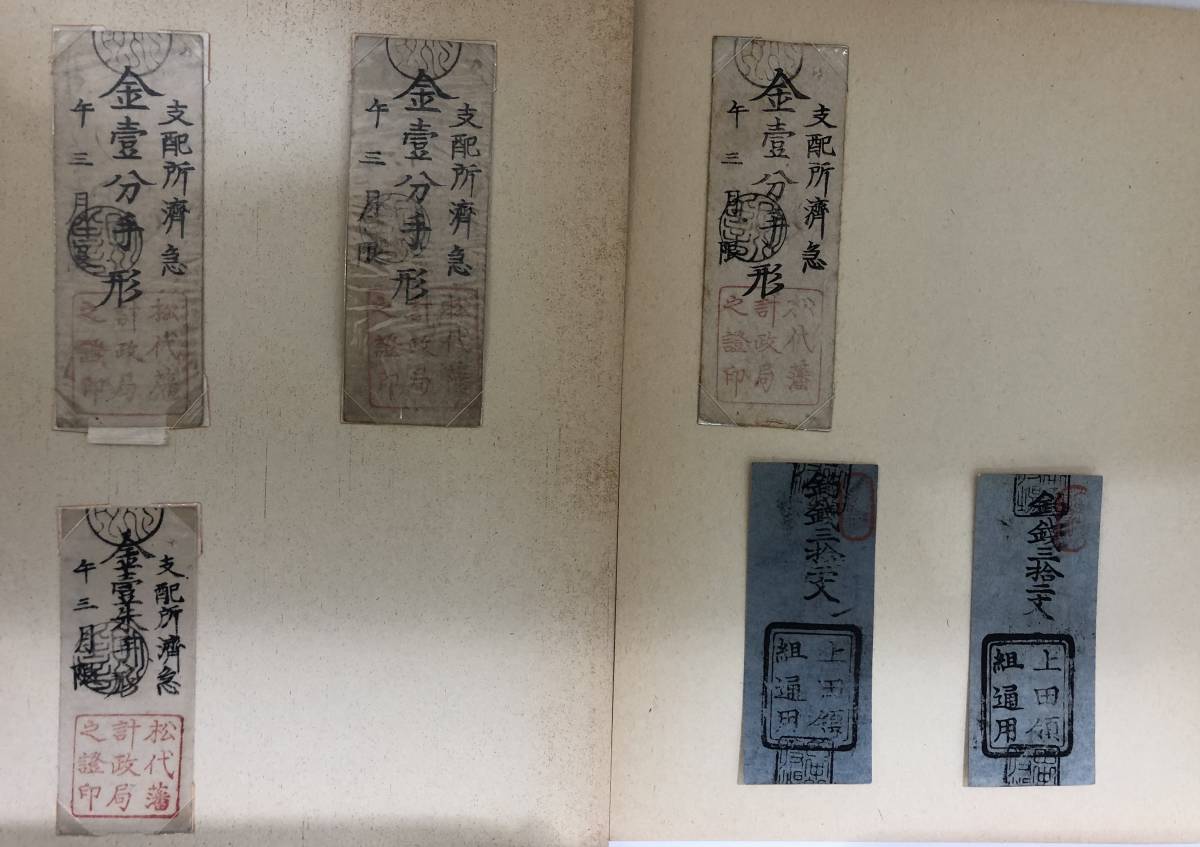 支配所濟急
金壹分手形
午三月限
松代藩
計政局
之證印
支配所濟急
金壹分手形
午三月限
松代藩
計政局
之證印
支配所濟急
金壹分手形
午三月限
松代藩
計政局
之證印
支配所濟急
金壹朱手形
午三月限
松代藩
計政局
之證印
銭三拾二文
上田領
組通用
銭三拾二文
上田領
組通用